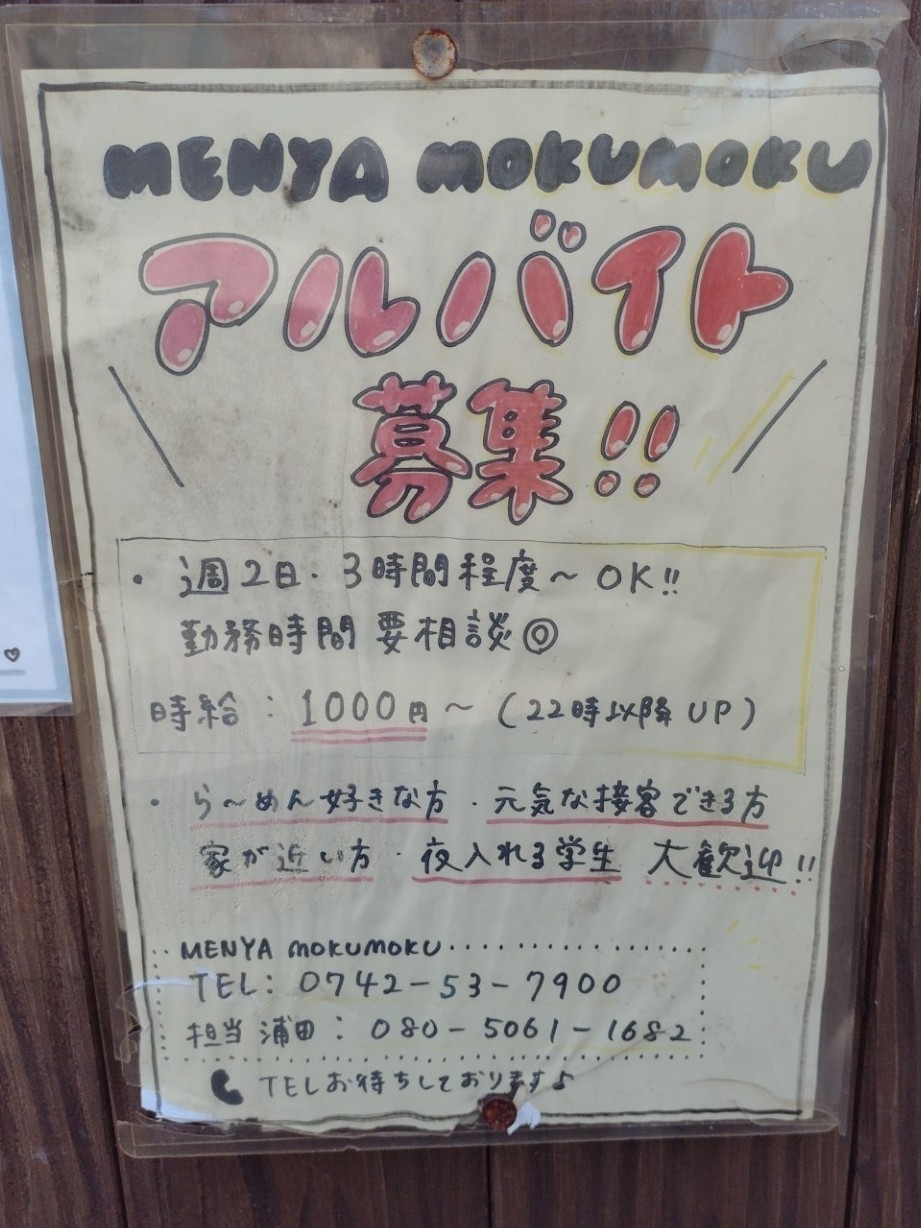 MENYA MOKUMOKU
アルバイト
募集!!
・週2日・3時間程度～OK!!
勤務時間 要相談◎
時給：1000円～（22時以降UP）
・ら～めん好きな方・元気な接客できる方
家が近い方・夜入れる学生 大歓迎!!
MENYA MOKUMOKU
TEL：0742-53-7900
担当 浦田：080-5061-1682
TELお待ちしております♪